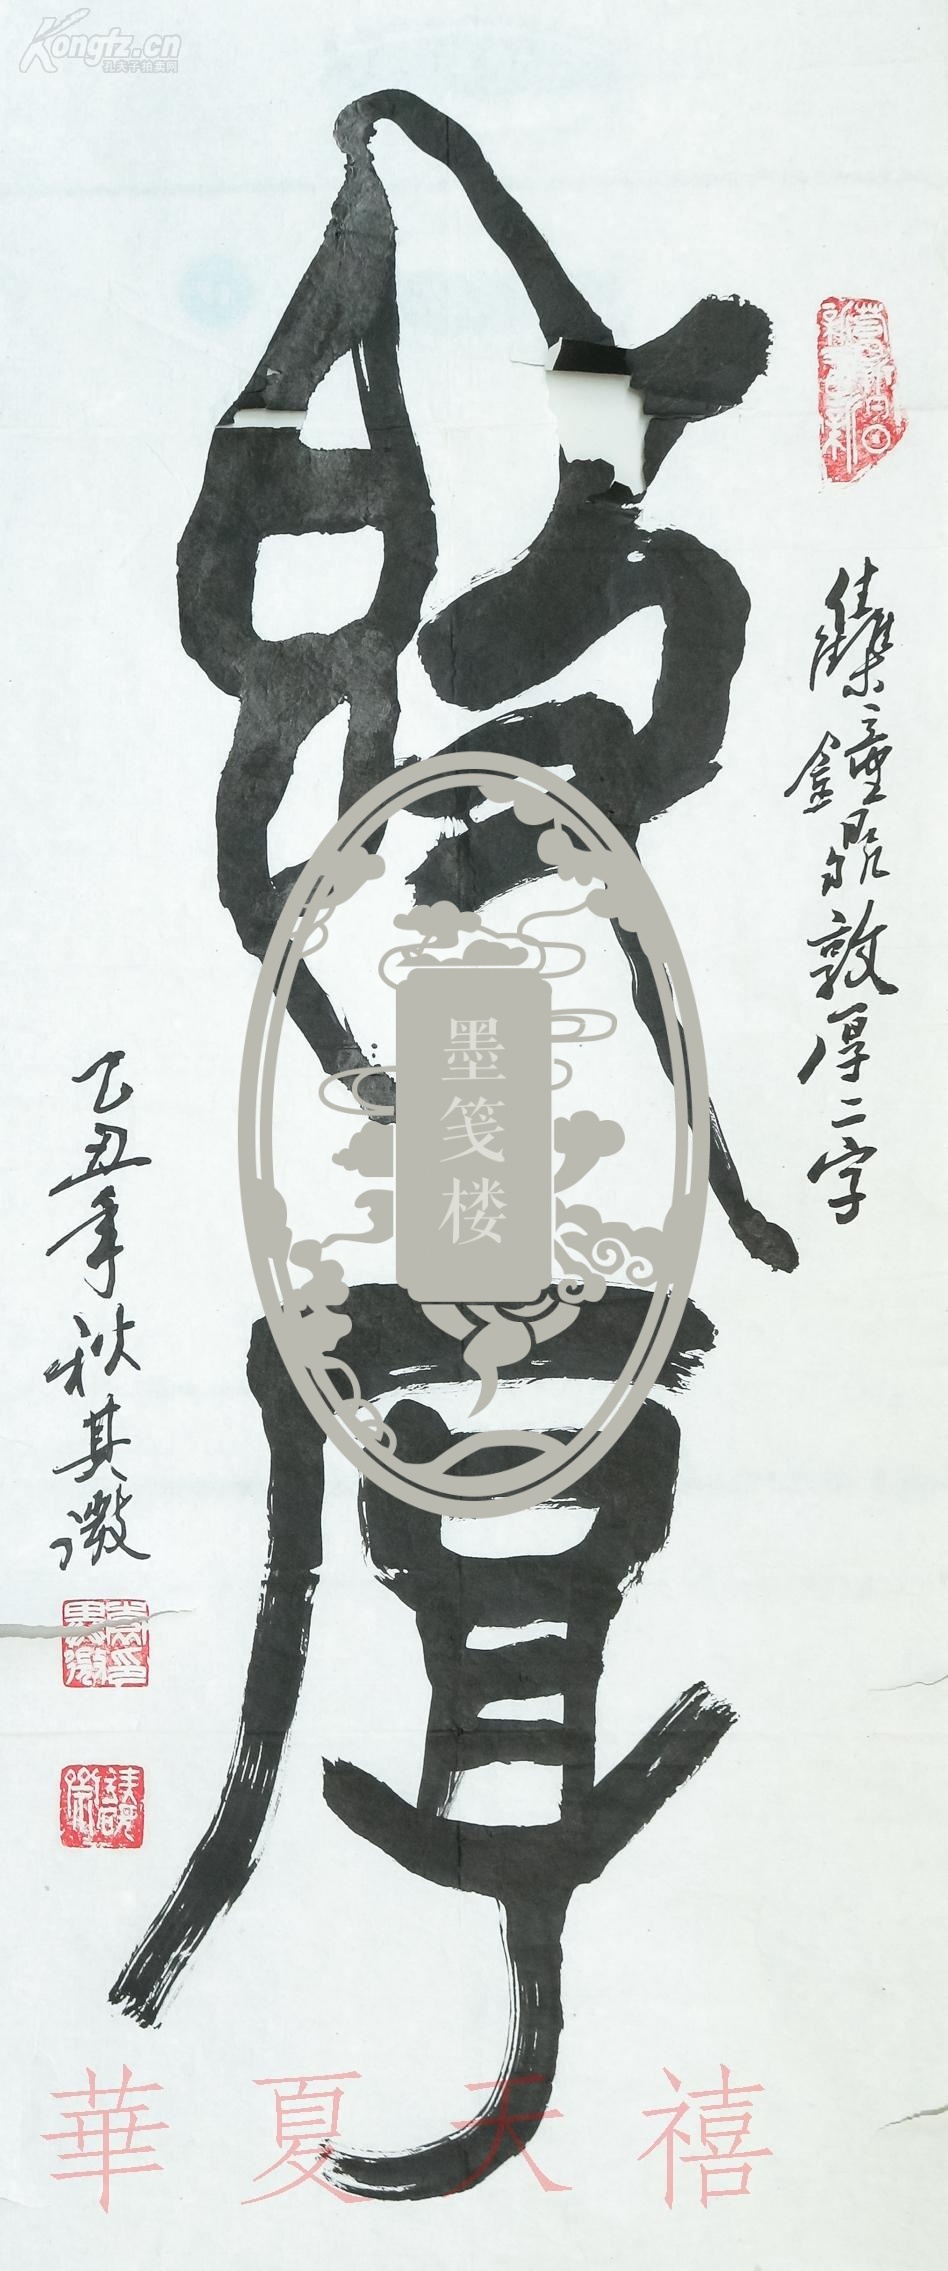 Kongfz.cn
孔夫子拍卖网
敦厚
集钟鼎敦厚二字
乙丑年秋其澂
墨笺楼
華夏天禧